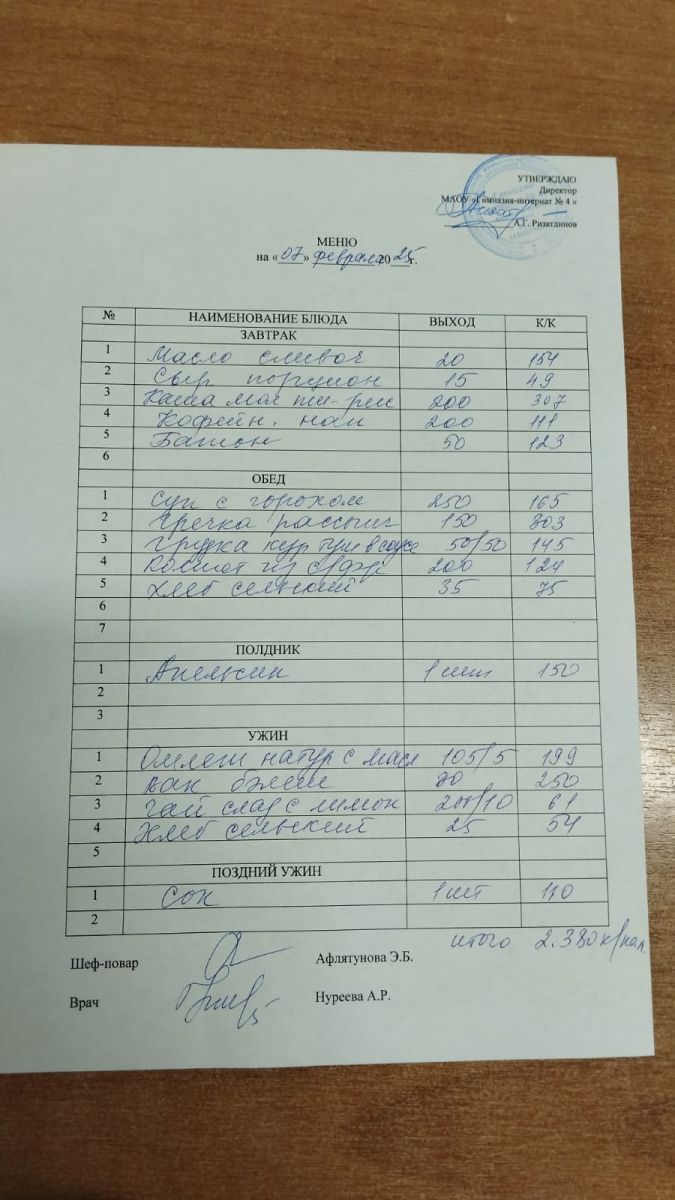 УТВЕРЖДАЮ
Директор
МАОУ «Гимназия-интернат № 4»
А.Г. Ризатдинов
МЕНЮ
на «07» февраля 2025 г.
№ НАИМЕНОВАНИЕ БЛЮДА ВЫХОД К/К
ЗАВТРАК
1 Масло сливоч 20 154
2 Сыр порцион 15 49
3 Каша мол пш-рис 200 307
4 Кофейн. нап 200 111
5 Батон 50 123
6
ОБЕД
1 Суп с горохом 250 165
2 Гречка рассып 150 303
3 Грудка кур туш в соусе 50/50 145
4 Компот из с/фр 200 124
5 Хлеб сельский 35 75
6
7
ПОЛДНИК
1 Апельсин 1 шт 150
2
3
УЖИН
1 Омлет натур с масл 105/5 199
2 вак бэлеш 250
3 Чай слад с лимон 200/10 61
4 Хлеб сельский 25 54
5
ПОЗДНИЙ УЖИН
1 Сок 1 шт 110
2
итого 2.380 к/кал.
Шеф-повар Афлятунова Э.Б.
Врач Нуреева А.Р.